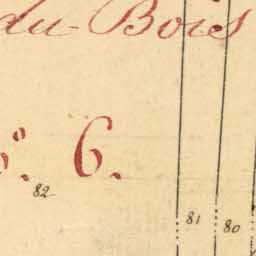 du Bois
6.
82
81
80